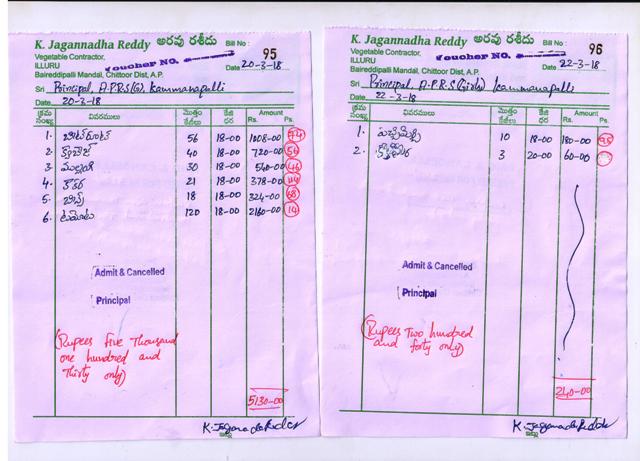 K. Jagannadha Reddy అరవు రశీదు Bill No :
95
Vegetable Contractor,
Voucher NO.
ILLURU
Date 20-3-18
Baireddipalli Mandal, Chittoor Dist, A.P.
Sri Principal, A.P.R.S(G) Kammanapalli
Date 20-3-18
క్రమ సంఖ్య వివరములు మొత్తం కేజీలు కేజి ధర Amount Rs. Ps.
1. బీట్‌రూట్ 56 18-00 1008-00 74
2. క్యాబేజ్ 40 18-00 720-00 56
3 ముల్లంగి 30 18-00 540-00 46
4. 21 18-00 378-00
5. బీన్స్ 18 18-00 324-00 68
6. టమోటు 120 18-00 2160-00 14
Admit & Cancelled
Principal
(Rupees five Thousand
one hundred and
Thirty only)
5130-00
K. Jagannada Reddy
K. Jagannadha Reddy అరవు రశీదు Bill No :
96
Vegetable Contractor,
Voucher NO.
ILLURU
Date 22-3-18
Baireddipalli Mandal, Chittoor Dist, A.P.
Sri Principal, A.P.R.S (Girls) Kammanapalli
Date 22-3-18
క్రమ సంఖ్య వివరములు మొత్తం కేజీలు కేజి ధర Amount Rs. Ps.
1. పచ్చిమిర్చి 10 18-00 180-00
2. 3 20-00 60-00
Admit & Cancelled
Principal
(Rupees Two hundred
and forty only)
240-00
K. Jagannada Reddy